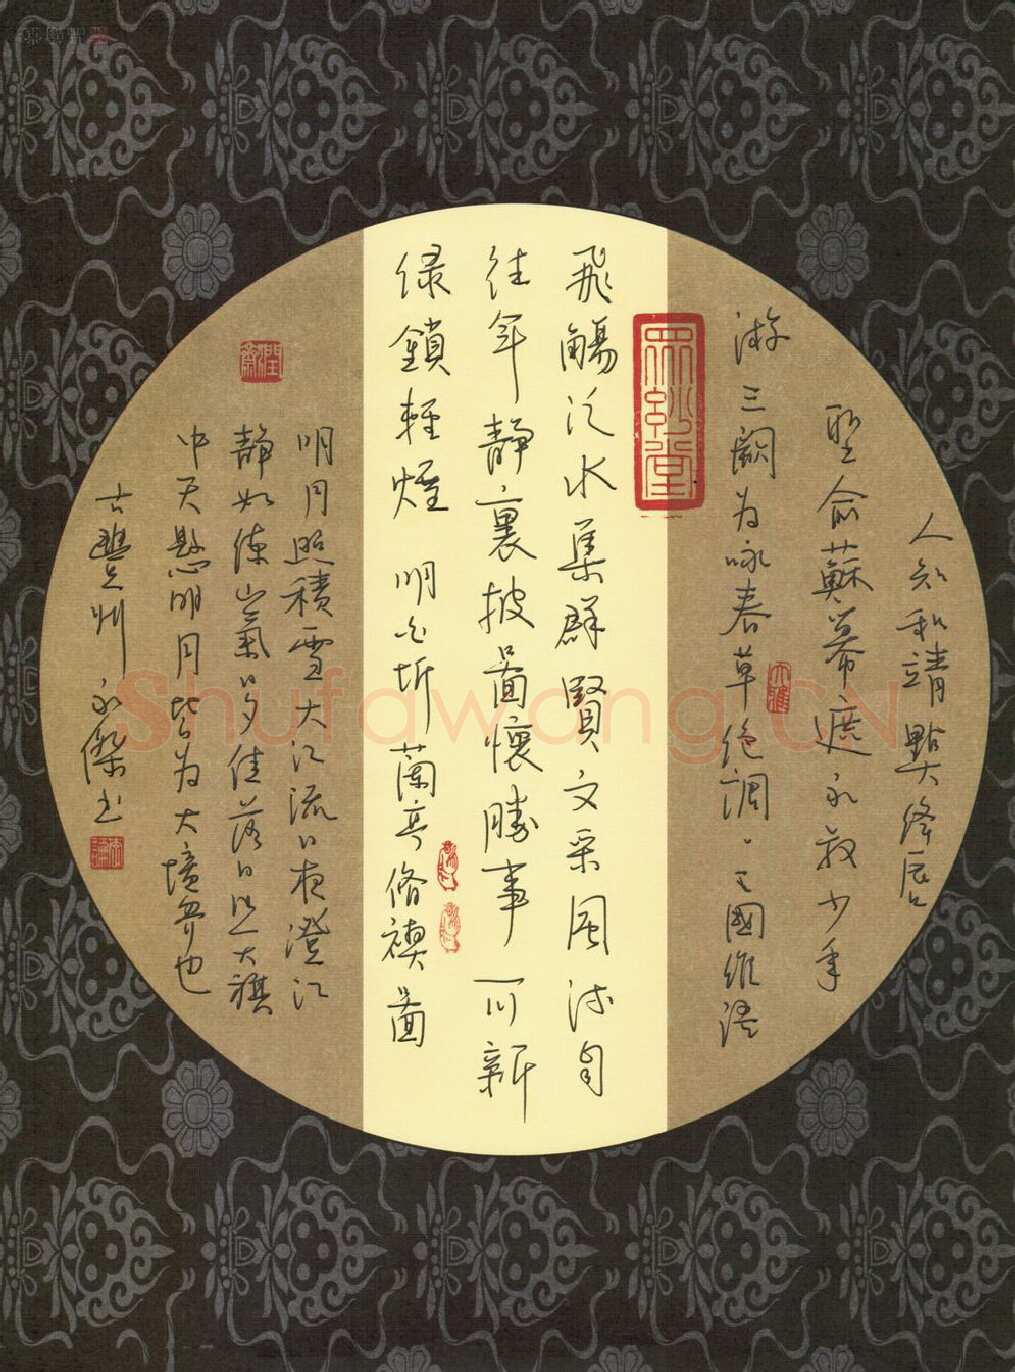 人知和靖點絳唇
聖俞蘇幕遮永叔少年
游三闋為咏春草絕調 王國維語
眾妙堂
飛觴泛水集群賢文采風流自
往年静裏披圖懷勝事一川新
绿鎖輕煙 明 圻 蘭亭脩禊圖
明月照積雪大江流日夜澄江
静如練山氣日夕佳落日照大旗
中天懸明月皆為大境界也
古豐州 永傑書
Shufawang.CN